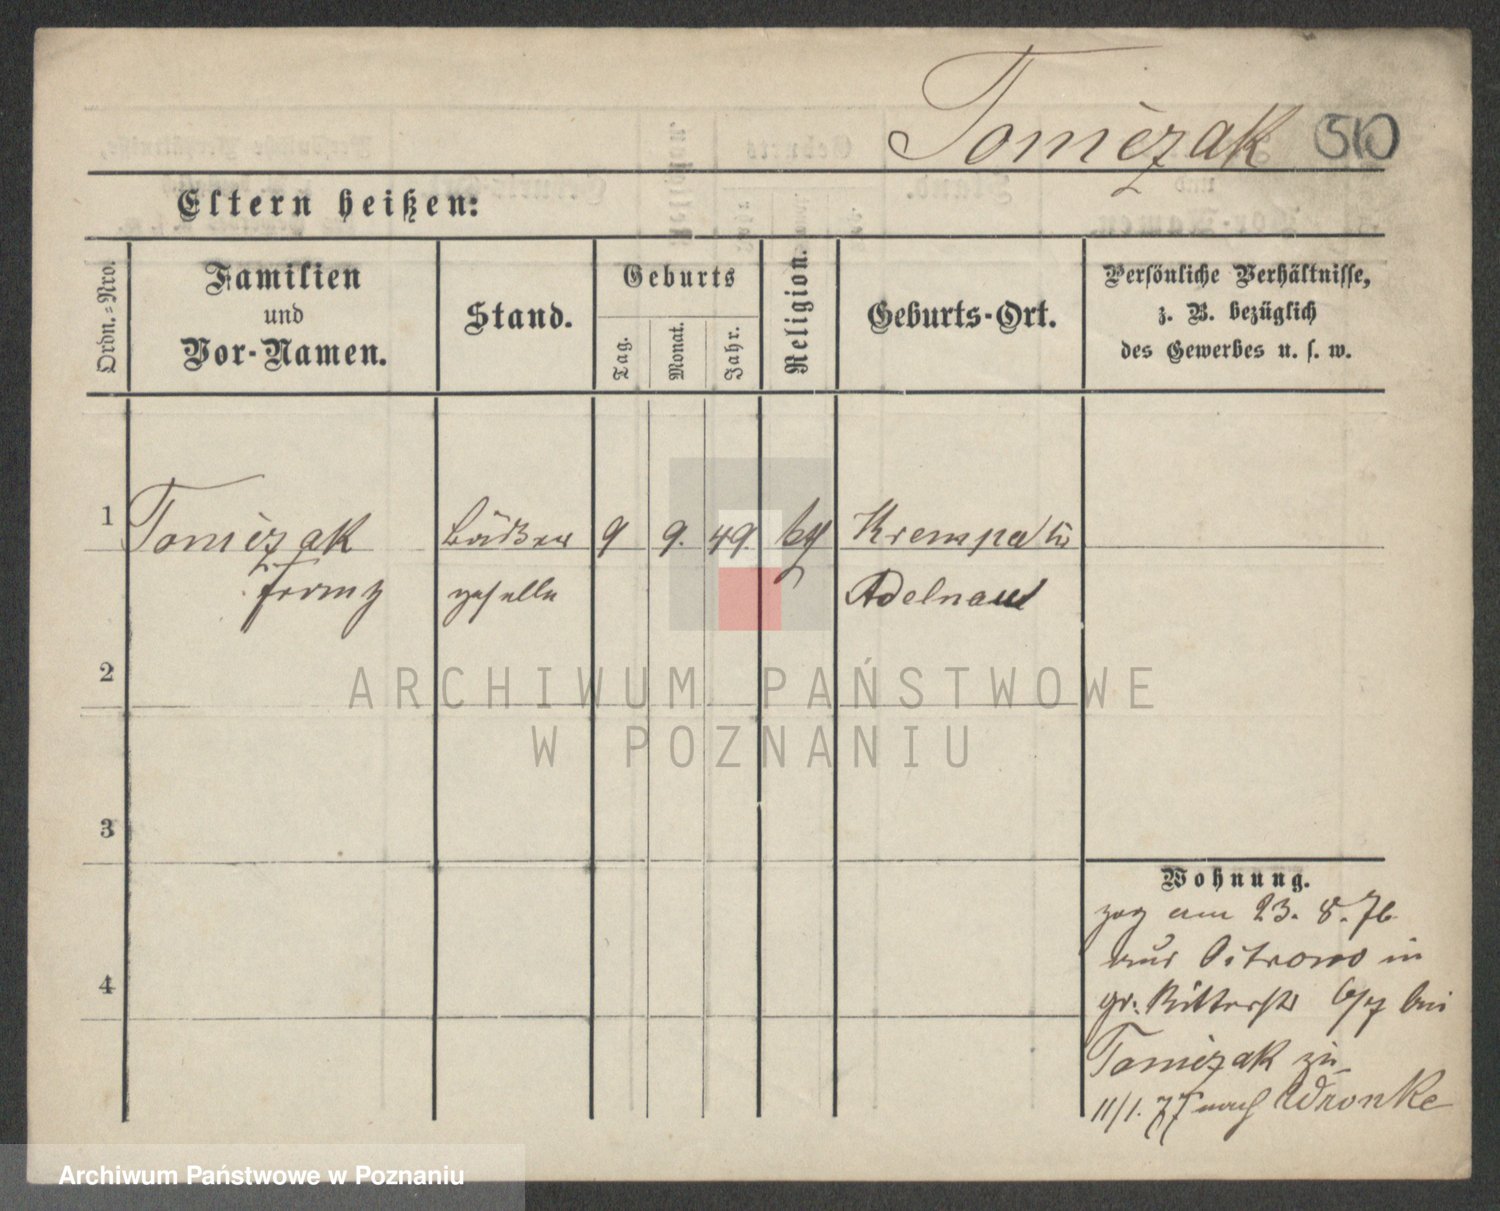 Tomczak 510
Eltern heißen:
Ordn.=Nro.
Familien
und
Vor-Namen.
Stand.
Geburts
Tag.
Monat.
Jahr.
Religion.
Geburts-Ort.
Persönliche Verhältnisse,
z. B. bezüglich
des Gewerbes u. s. w.
1 Tomczak 9 9. 49. Krempa
Franz geselle Adelnau
2
3
4
Wohnung.
zog am 23. 8. 76
aus Ostrowo in
gr. Ritterstr 6/7 bei
Tomczak zu
11/1. 77 nach Wronke
ARCHIWUM PAŃSTWOWE
W POZNANIU
Archiwum Państwowe w Poznaniu